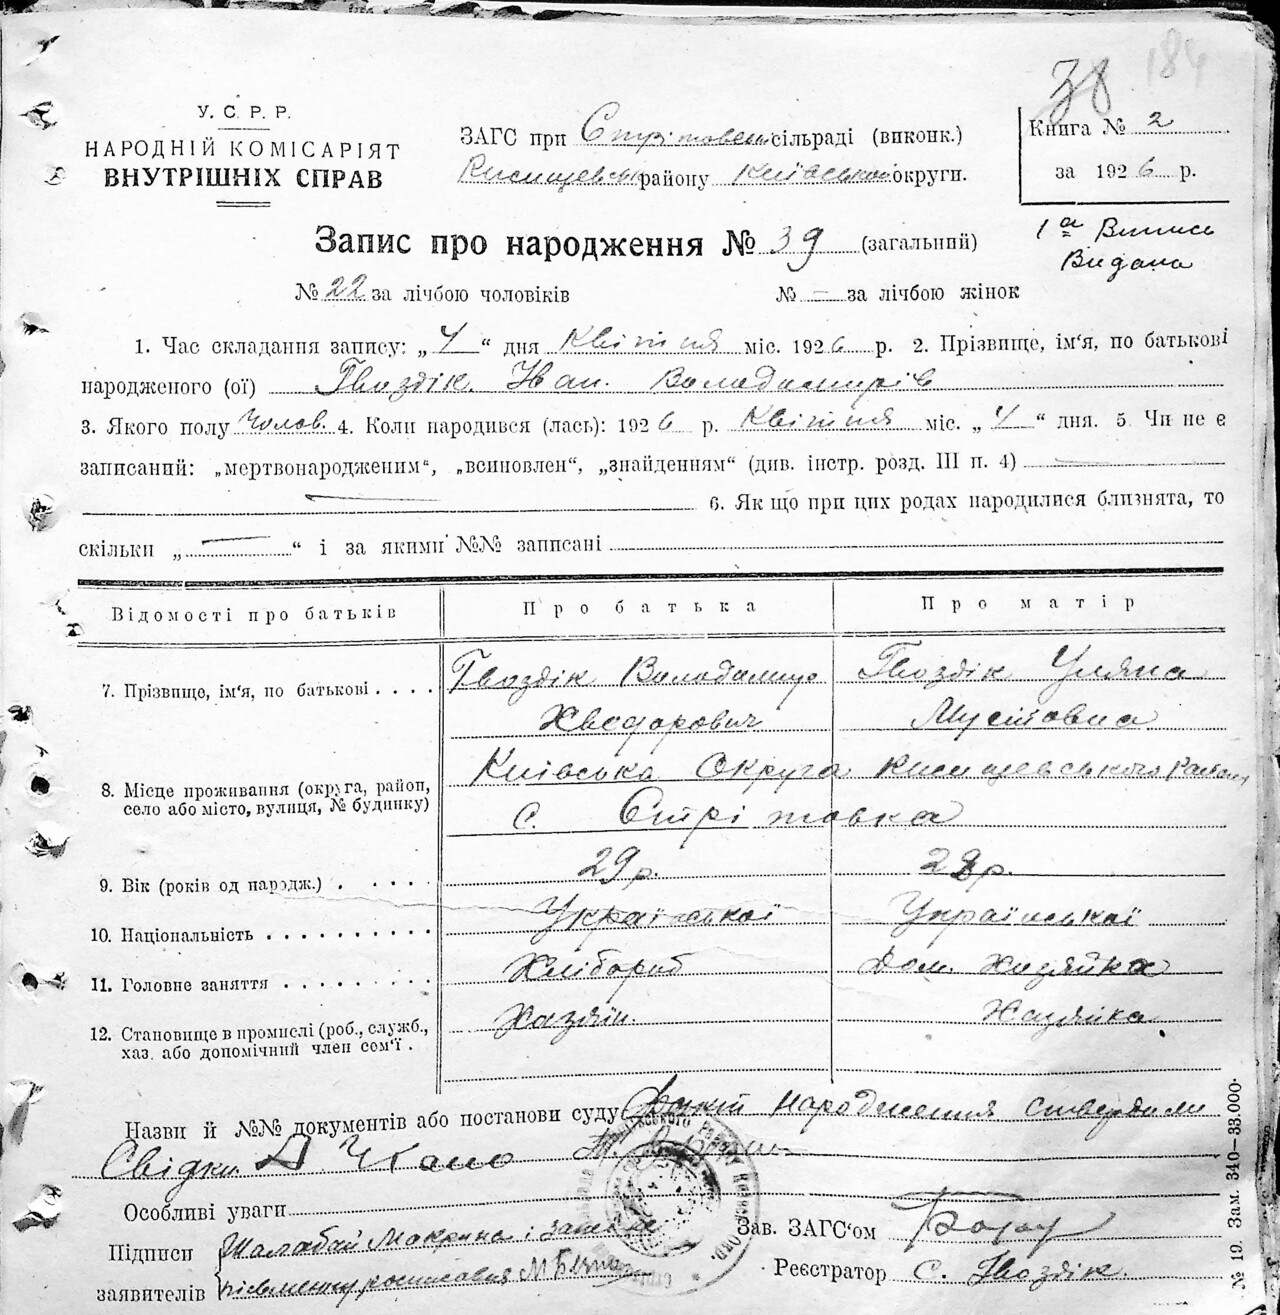 38 184
У. С. Р. Р.
НАРОДНІЙ КОМІСАРІЯТ
ВНУТРІШНІХ СПРАВ
ЗАГС при Стрітовськ сільраді (виконк.)
району Київської округи.
Книга № 2
за 1926 р.
1ª Випись
Видана
Запис про народження № 39 (загальний)
№ 22 за лічбою чоловіків № – за лічбою жінок
1. Час складання запису: „4“ дня Квітня міс. 1926 р. 2. Прізвище, ім'я, по батькові
народженого (ої) Гвоздік Іван. Володимирів
3. Якого полу Чолов. 4. Коли народився (лась): 1926 р. Квітня міс. „4“ дня. 5. Чи не є
записаний: „мертвонародженим“, „всиновлен“, „знайденням“ (див. інстр. розд. III п. 4) —
— 6. Як що при цих родах народилися близнята, то
скільки „—“ і за якими №№ записані
Відомості про батьків Про батька Про матір
7. Прізвище, ім'я, по батькові . . . . Гвоздік Володимир Гвоздік Уляна
Хведорович Мусіовна
8. Місце проживання (округа, район,
село або місто, вулиця, № будинку) Київська Округа Района
с. Стрітовка
9. Вік (років од народж.) . . . . . 29 р. 28 р.
10. Національність . . . . . . . . . . Української Української
11. Головне заняття . . . . . . . . . Хлібороб Дом. Хазяйка
12. Становище в промислі (роб., служб.,
хаз. або допомічний член сем'ї . Хазяін. Хазяйка
Назви й №№ документів або постанови суду Факт народження ствердили
Свідки
Особливі уваги
Підписи
заявителів
Зав. ЗАГС'ом
Реєстратор С. Гвоздік.
№ 19. Зам. 340—33.000-